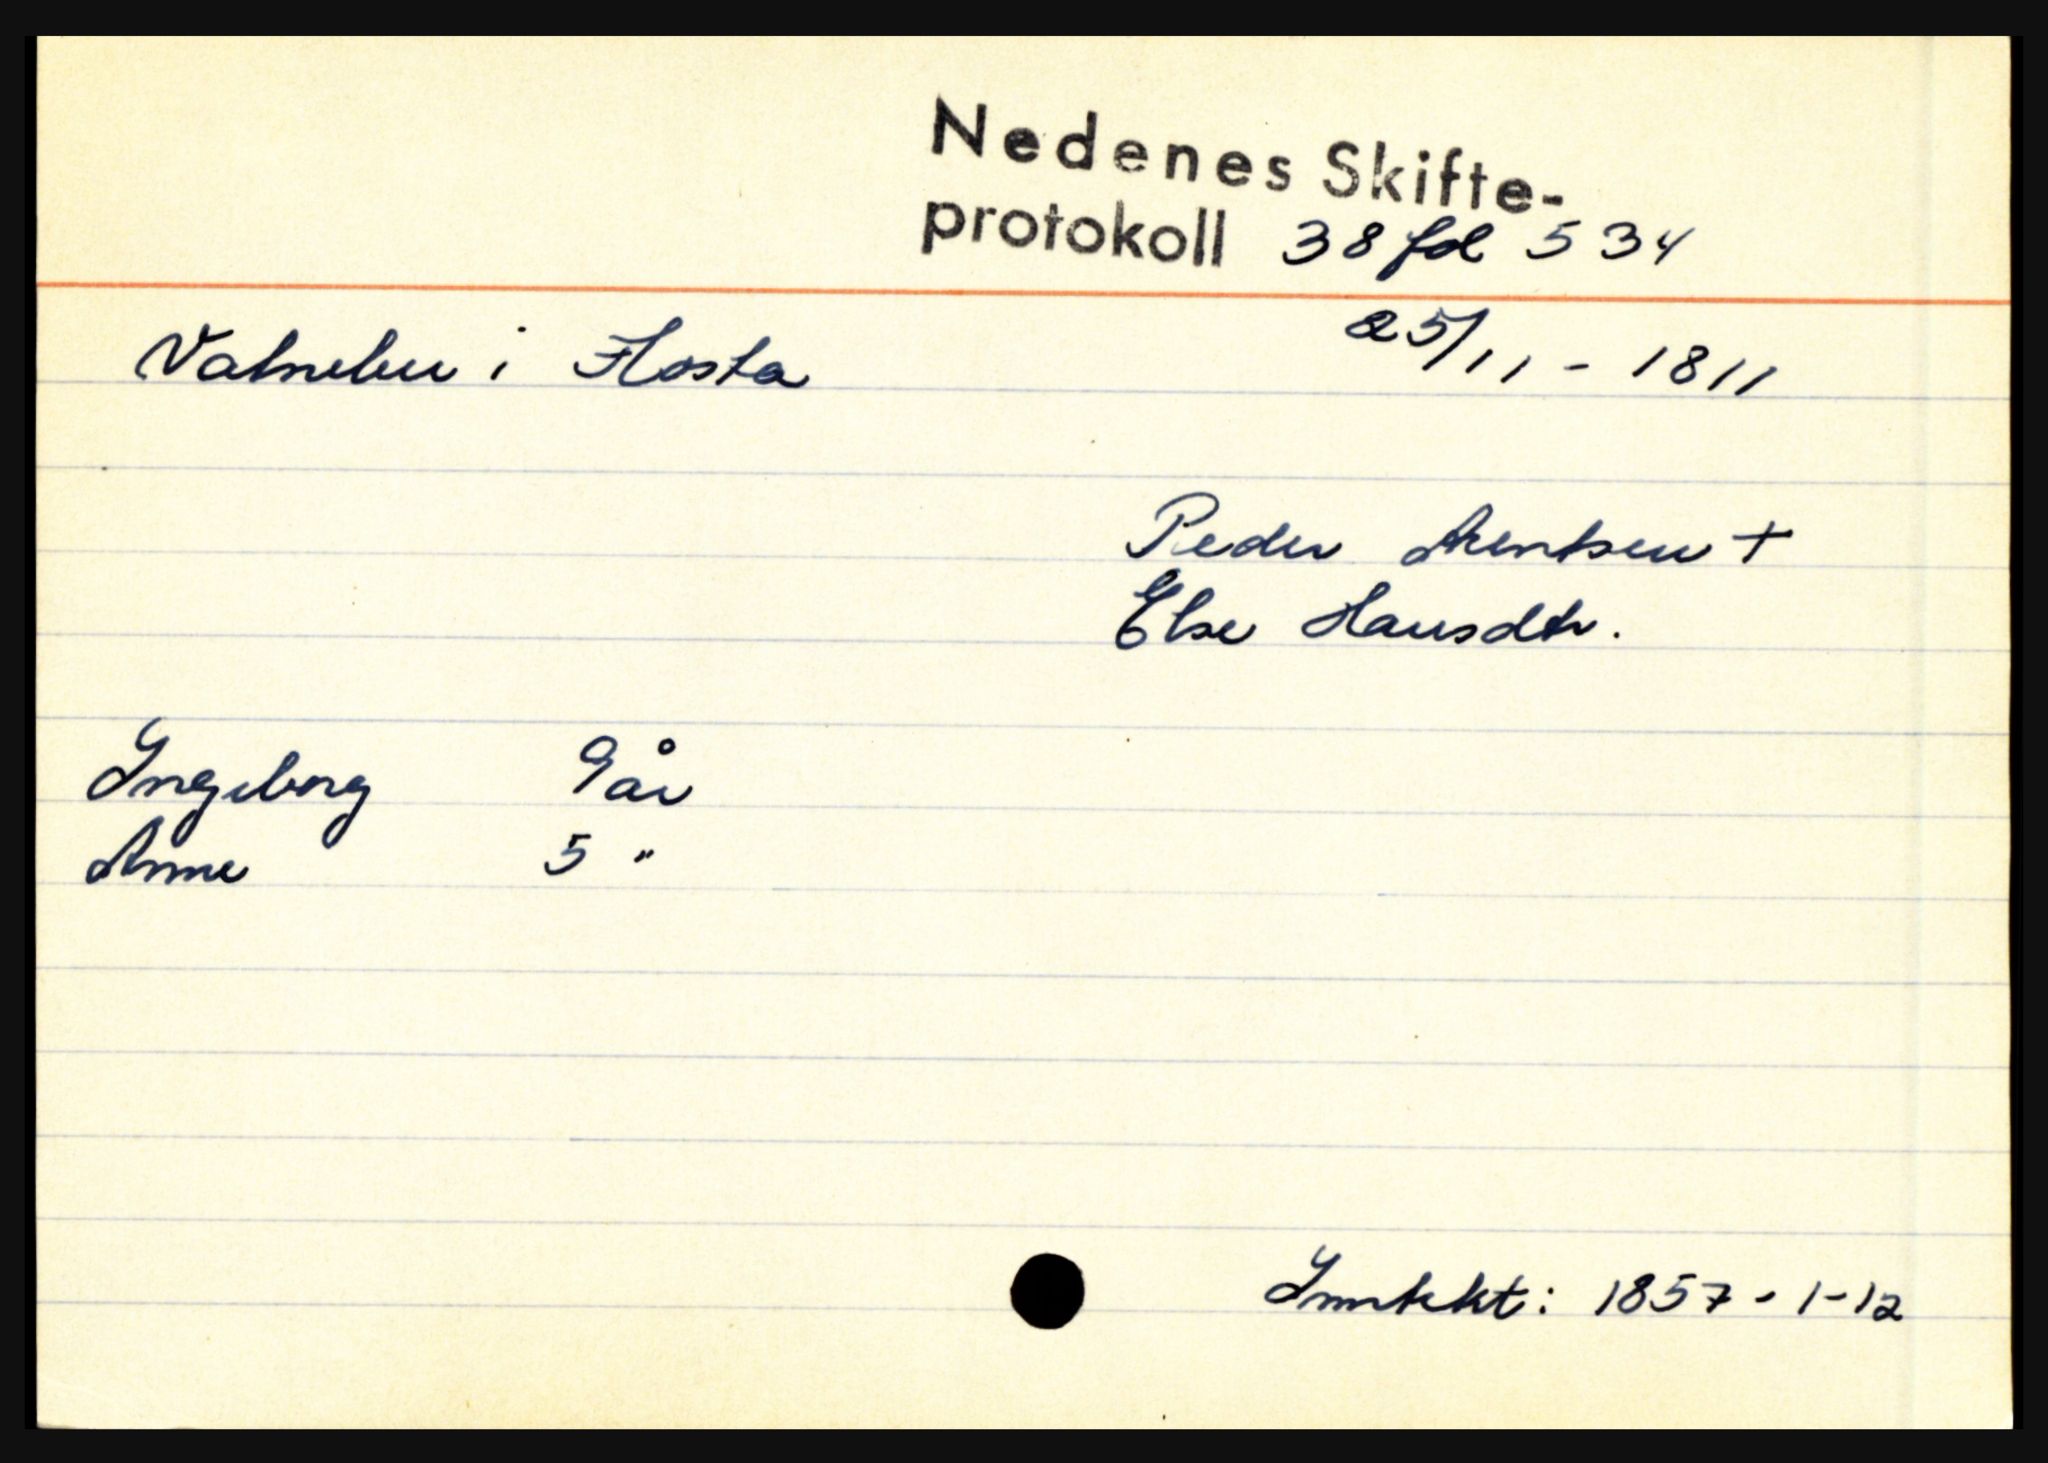 Nedenes Skifte-
protokoll 38 fol 534
Vatnebu i Flosta 25/11 - 1811
Peder Arentsen +
Else Hansdtr.
Ingeborg 9 år
Anne 5 "
Inntekt: 1857 - 1-12